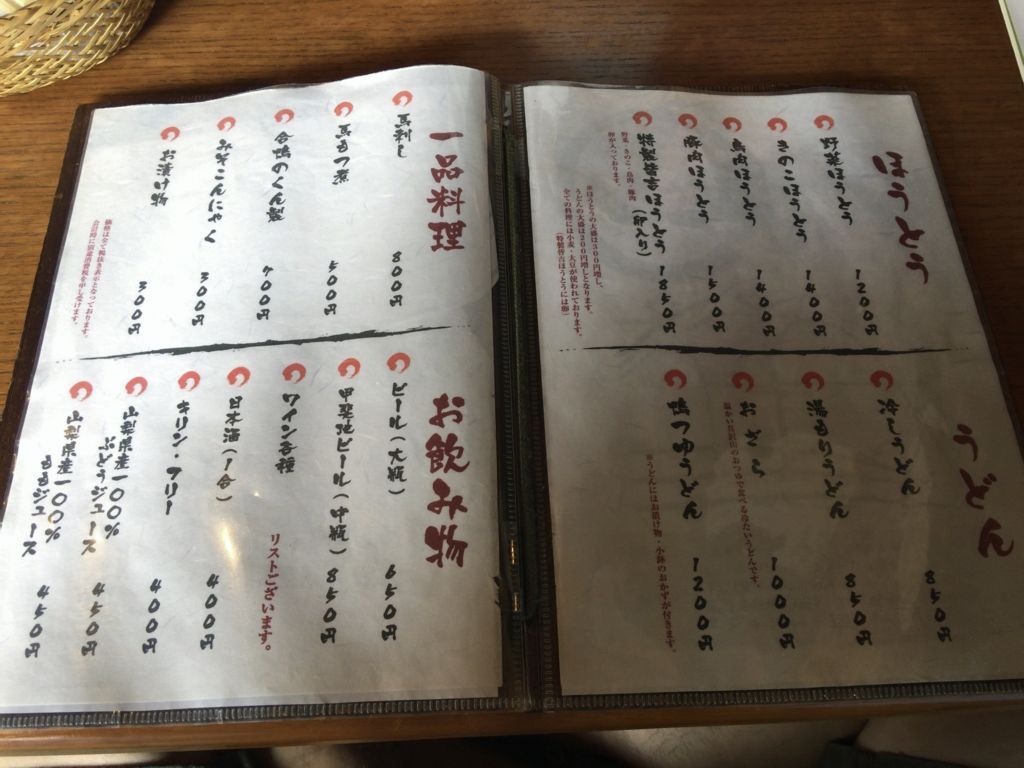 ほうとう
野菜ほうとう 1200円
きのこほうとう 1400円
鳥肉ほうとう 1400円
豚肉ほうとう 1500円
特製皆吉ほうとう(卵入り) 1850円
野菜・きのこ・鳥肉・豚肉
卵が入っております。
※ほうとうの大盛は300円増し、
うどんの大盛は200円増しとなります。
全ての料理には小麦・大豆が使われております。
(特製皆吉ほうとうには卵)
うどん
冷しうどん 850円
湯もりうどん 850円
おざら 1000円
温かい具沢山のおつゆで食べる冷たいうどんです。
鴨つゆうどん 1200円
※うどんにはお漬け物・小鉢のおかずが付きます。
一品料理
馬刺し 800円
馬もつ煮 500円
合鴨のくん製 700円
みそこんにゃく 300円
お漬け物 300円
価格は全て税抜き表示となっております。
会計時に別途消費税を申し受けます。
お飲み物
ビール(大瓶) 650円
甲斐地ビール(中瓶) 850円
ワイン各種 リストございます。
日本酒(1合) 400円
キリン・フリー 400円
山梨県産一〇〇%
ぶどうジュース 450円
山梨県産一〇〇%
ももジュース 450円